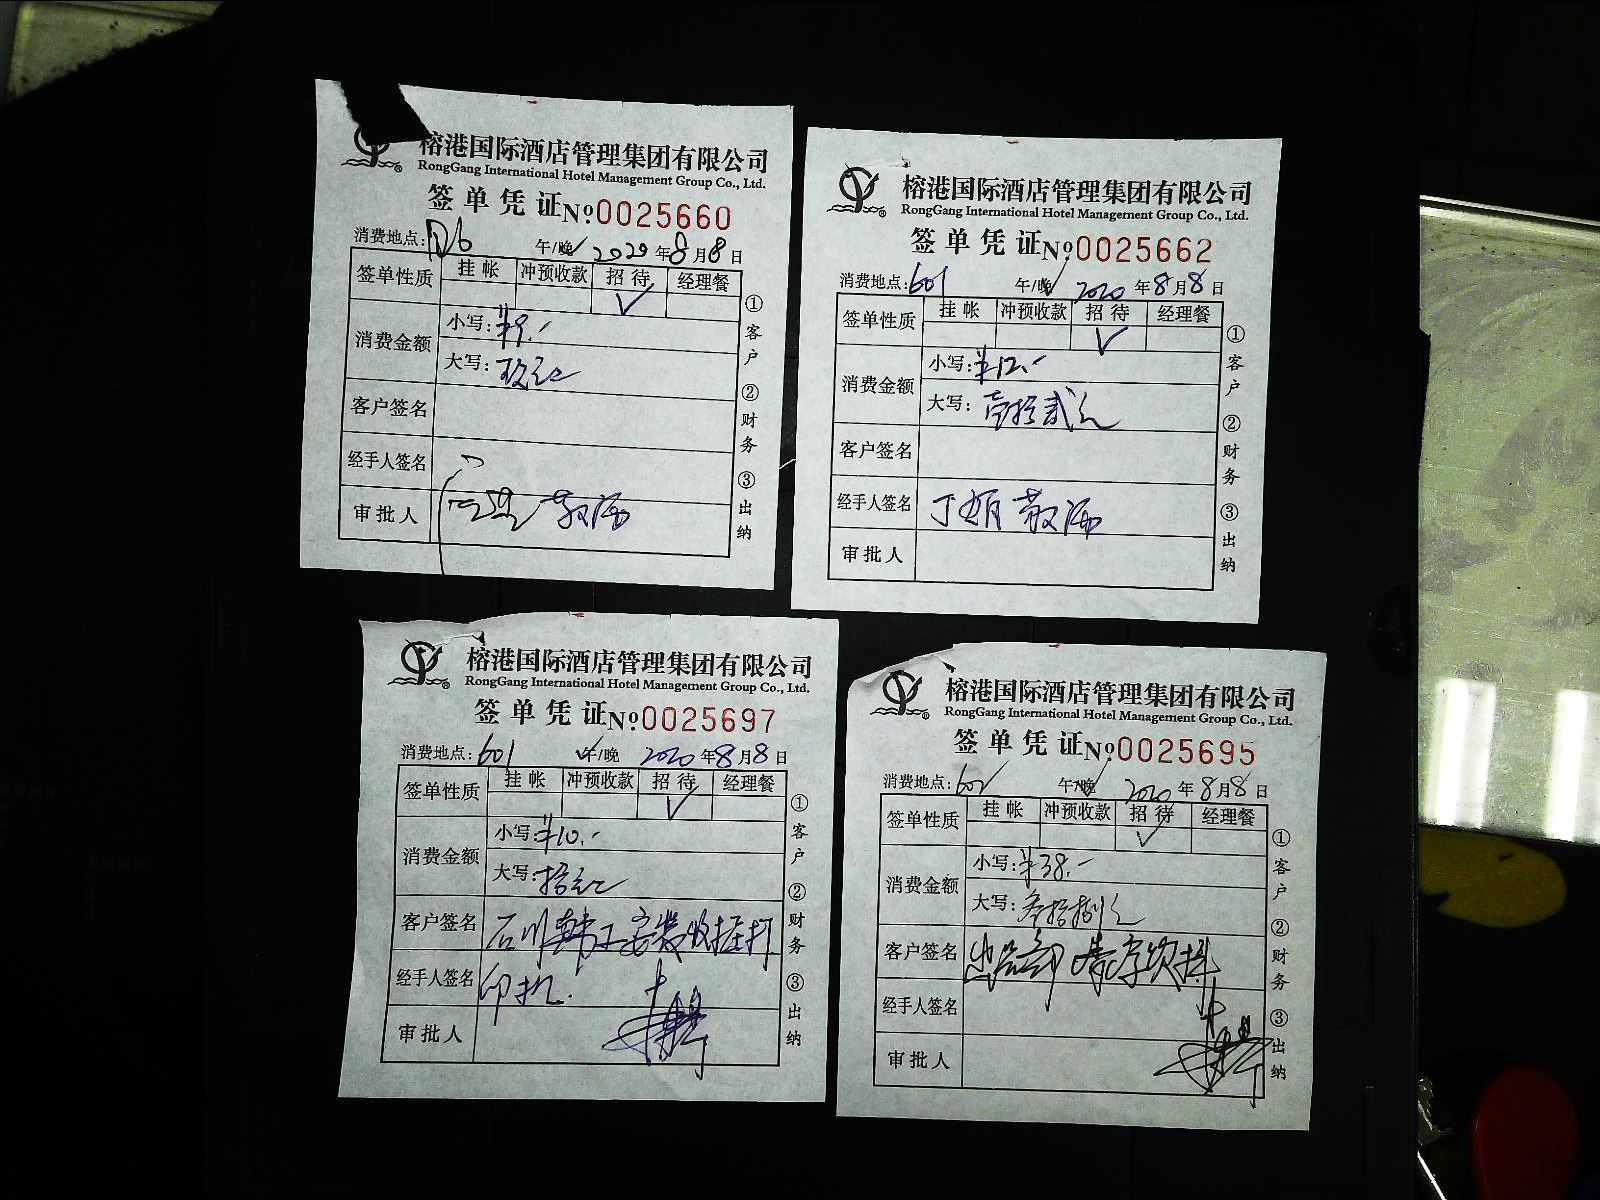 榕港国际酒店管理集团有限公司
RongGang International Hotel Management Group Co., Ltd.
签单凭证 №0025660
消费地点: 午/晚 2020年8月8日
签单性质 挂帐 冲预收款 招待 经理餐
✓
消费金额 小写:¥9.-
大写:玖元
客户签名
经手人签名
审批人
①客户 ②财务 ③出纳
榕港国际酒店管理集团有限公司
RongGang International Hotel Management Group Co., Ltd.
签单凭证 №0025662
消费地点:601 午/晚 2020年8月8日
签单性质 挂帐 冲预收款 招待 经理餐
✓
消费金额 小写:¥12.-
大写:壹拾贰元
客户签名
经手人签名
审批人
①客户 ②财务 ③出纳
榕港国际酒店管理集团有限公司
RongGang International Hotel Management Group Co., Ltd.
签单凭证 №0025697
消费地点:601 午/晚 2020年8月8日
签单性质 挂帐 冲预收款 招待 经理餐
✓
消费金额 小写:¥10.-
大写:拾元
客户签名
经手人签名 印机.
审批人
①客户 ②财务 ③出纳
榕港国际酒店管理集团有限公司
RongGang International Hotel Management Group Co., Ltd.
签单凭证 №0025695
消费地点:601 午/晚 2020年8月8日
签单性质 挂帐 冲预收款 招待 经理餐
✓
消费金额 小写:¥38.-
大写:叁拾捌元
客户签名
经手人签名
审批人
①客户 ②财务 ③出纳